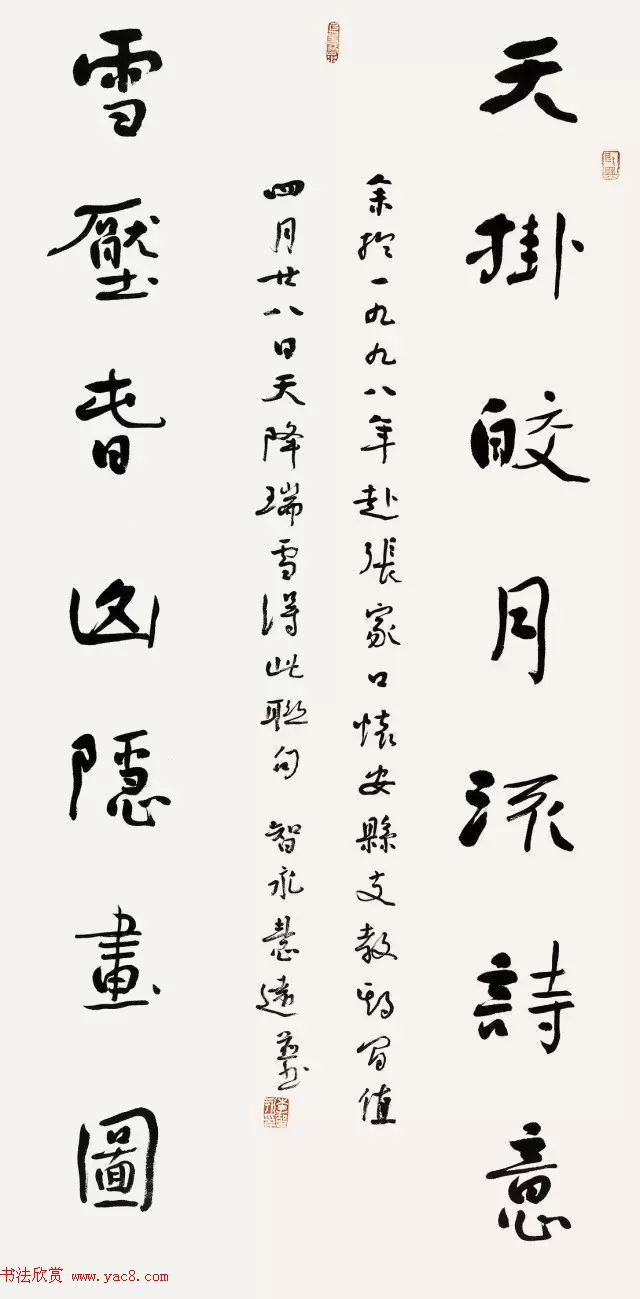 天掛皎月流詩意
余於一九九八年赴張家口懷安縣支教期间值
四月廿八日天降瑞雪得此聯句 智永慧遠並书
雪壓春山隱畫圖
书法欣赏 www.yac8.com